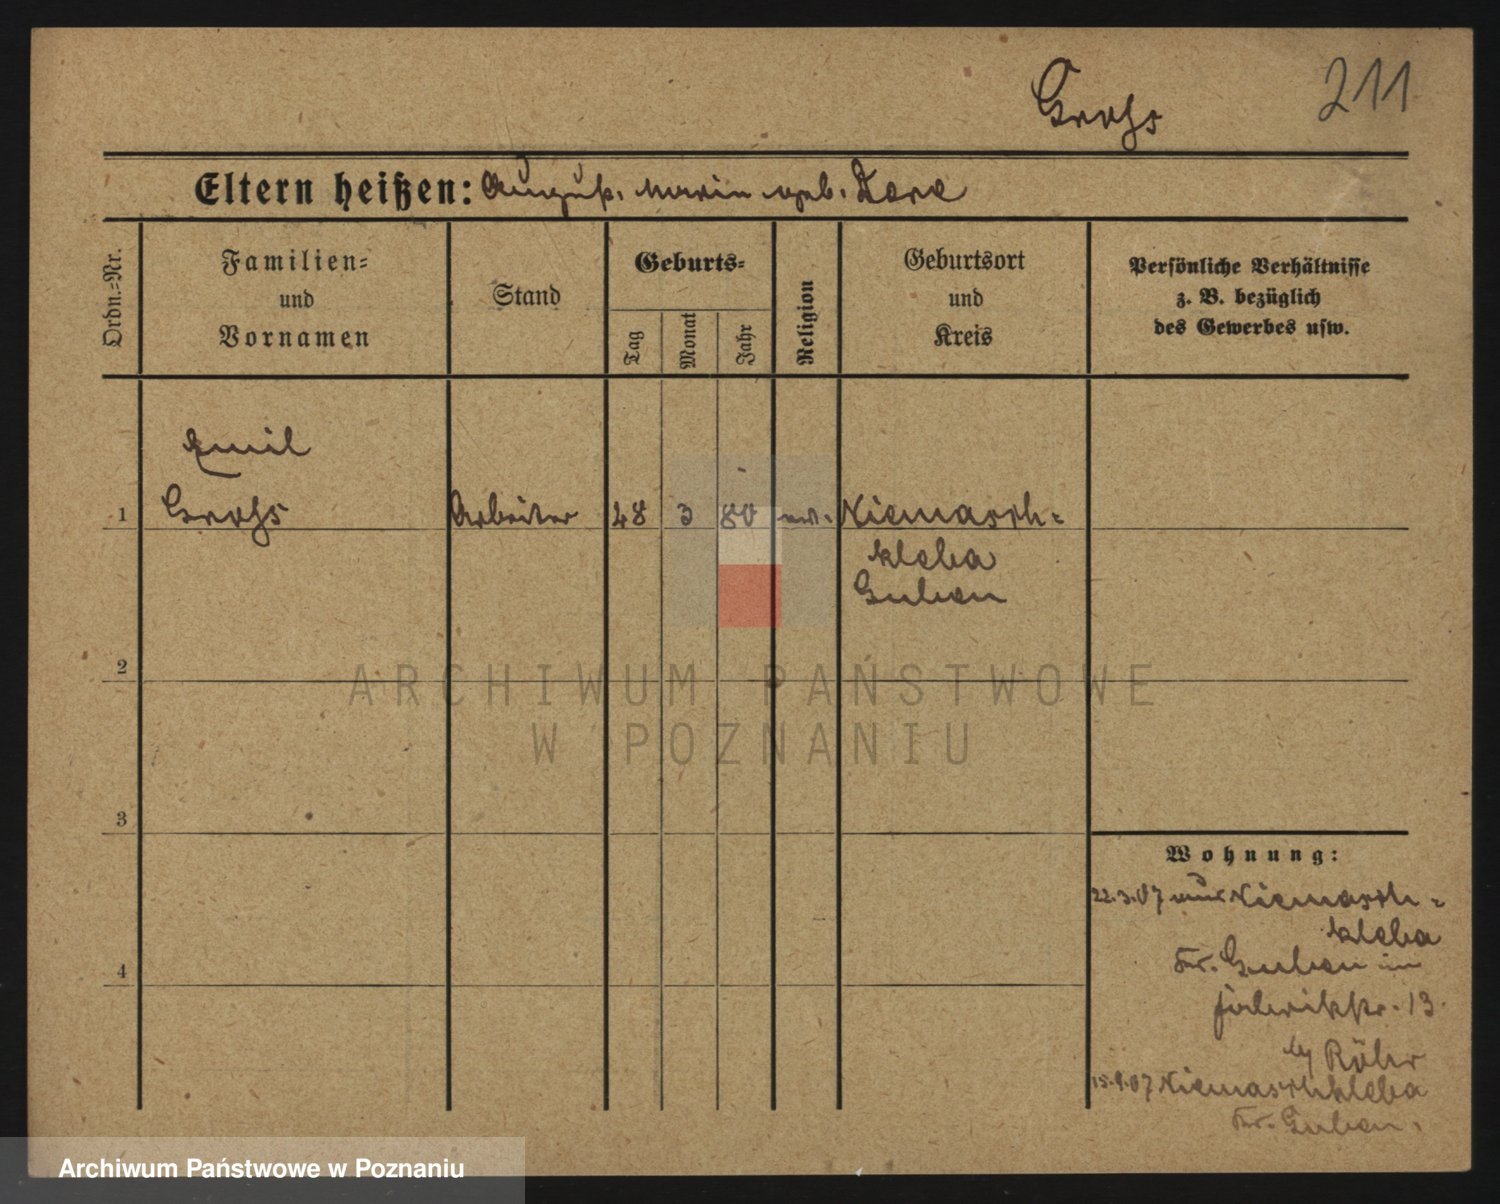 Grohs
211
Eltern heißen: August. Marie geb. Dore
Ordn.=Nr.
Familien=
und
Vornamen
Stand
Geburts=
Tag
Monat
Jahr
Religion
Geburtsort
und
Kreis
Persönliche Verhältnisse
z. B. bezüglich
des Gewerbes usw.
Emil
1 Grohs Arbeiter 3 80 Niemasch=
kleba
Guben
2
ARCHIWUM PAŃSTWOWE
W POZNANIU
3
Wohnung:
22.3.07 aus Niemasch=
kleba
4
Kr. Guben in
Fabrikstr. 13
by Röhr
15.9.07 Niemaschkleba
Kr. Guben.
Archiwum Państwowe w Poznaniu